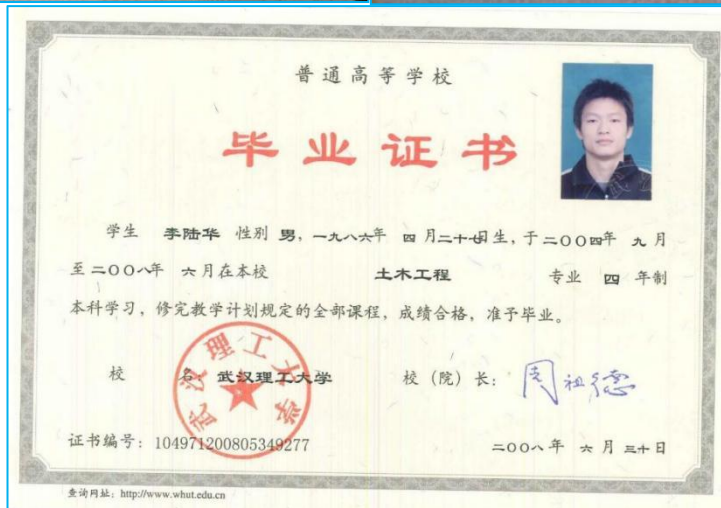 普通高等学校
毕业证书
学生 李陆华 性别 男，一九八六年 四 月二十七日生，于二〇〇四年 九 月
至二〇〇八年 六 月在本校 土木工程 专业 四 年制
本科学习，修完教学计划规定的全部课程，成绩合格，准予毕业。
校 名 武汉理工大学 校（院）长：周祖德
武汉理工大学
证书编号：104971200805349277
二〇〇八年 六 月 三十日
查询网址：http://www.whut.edu.cn